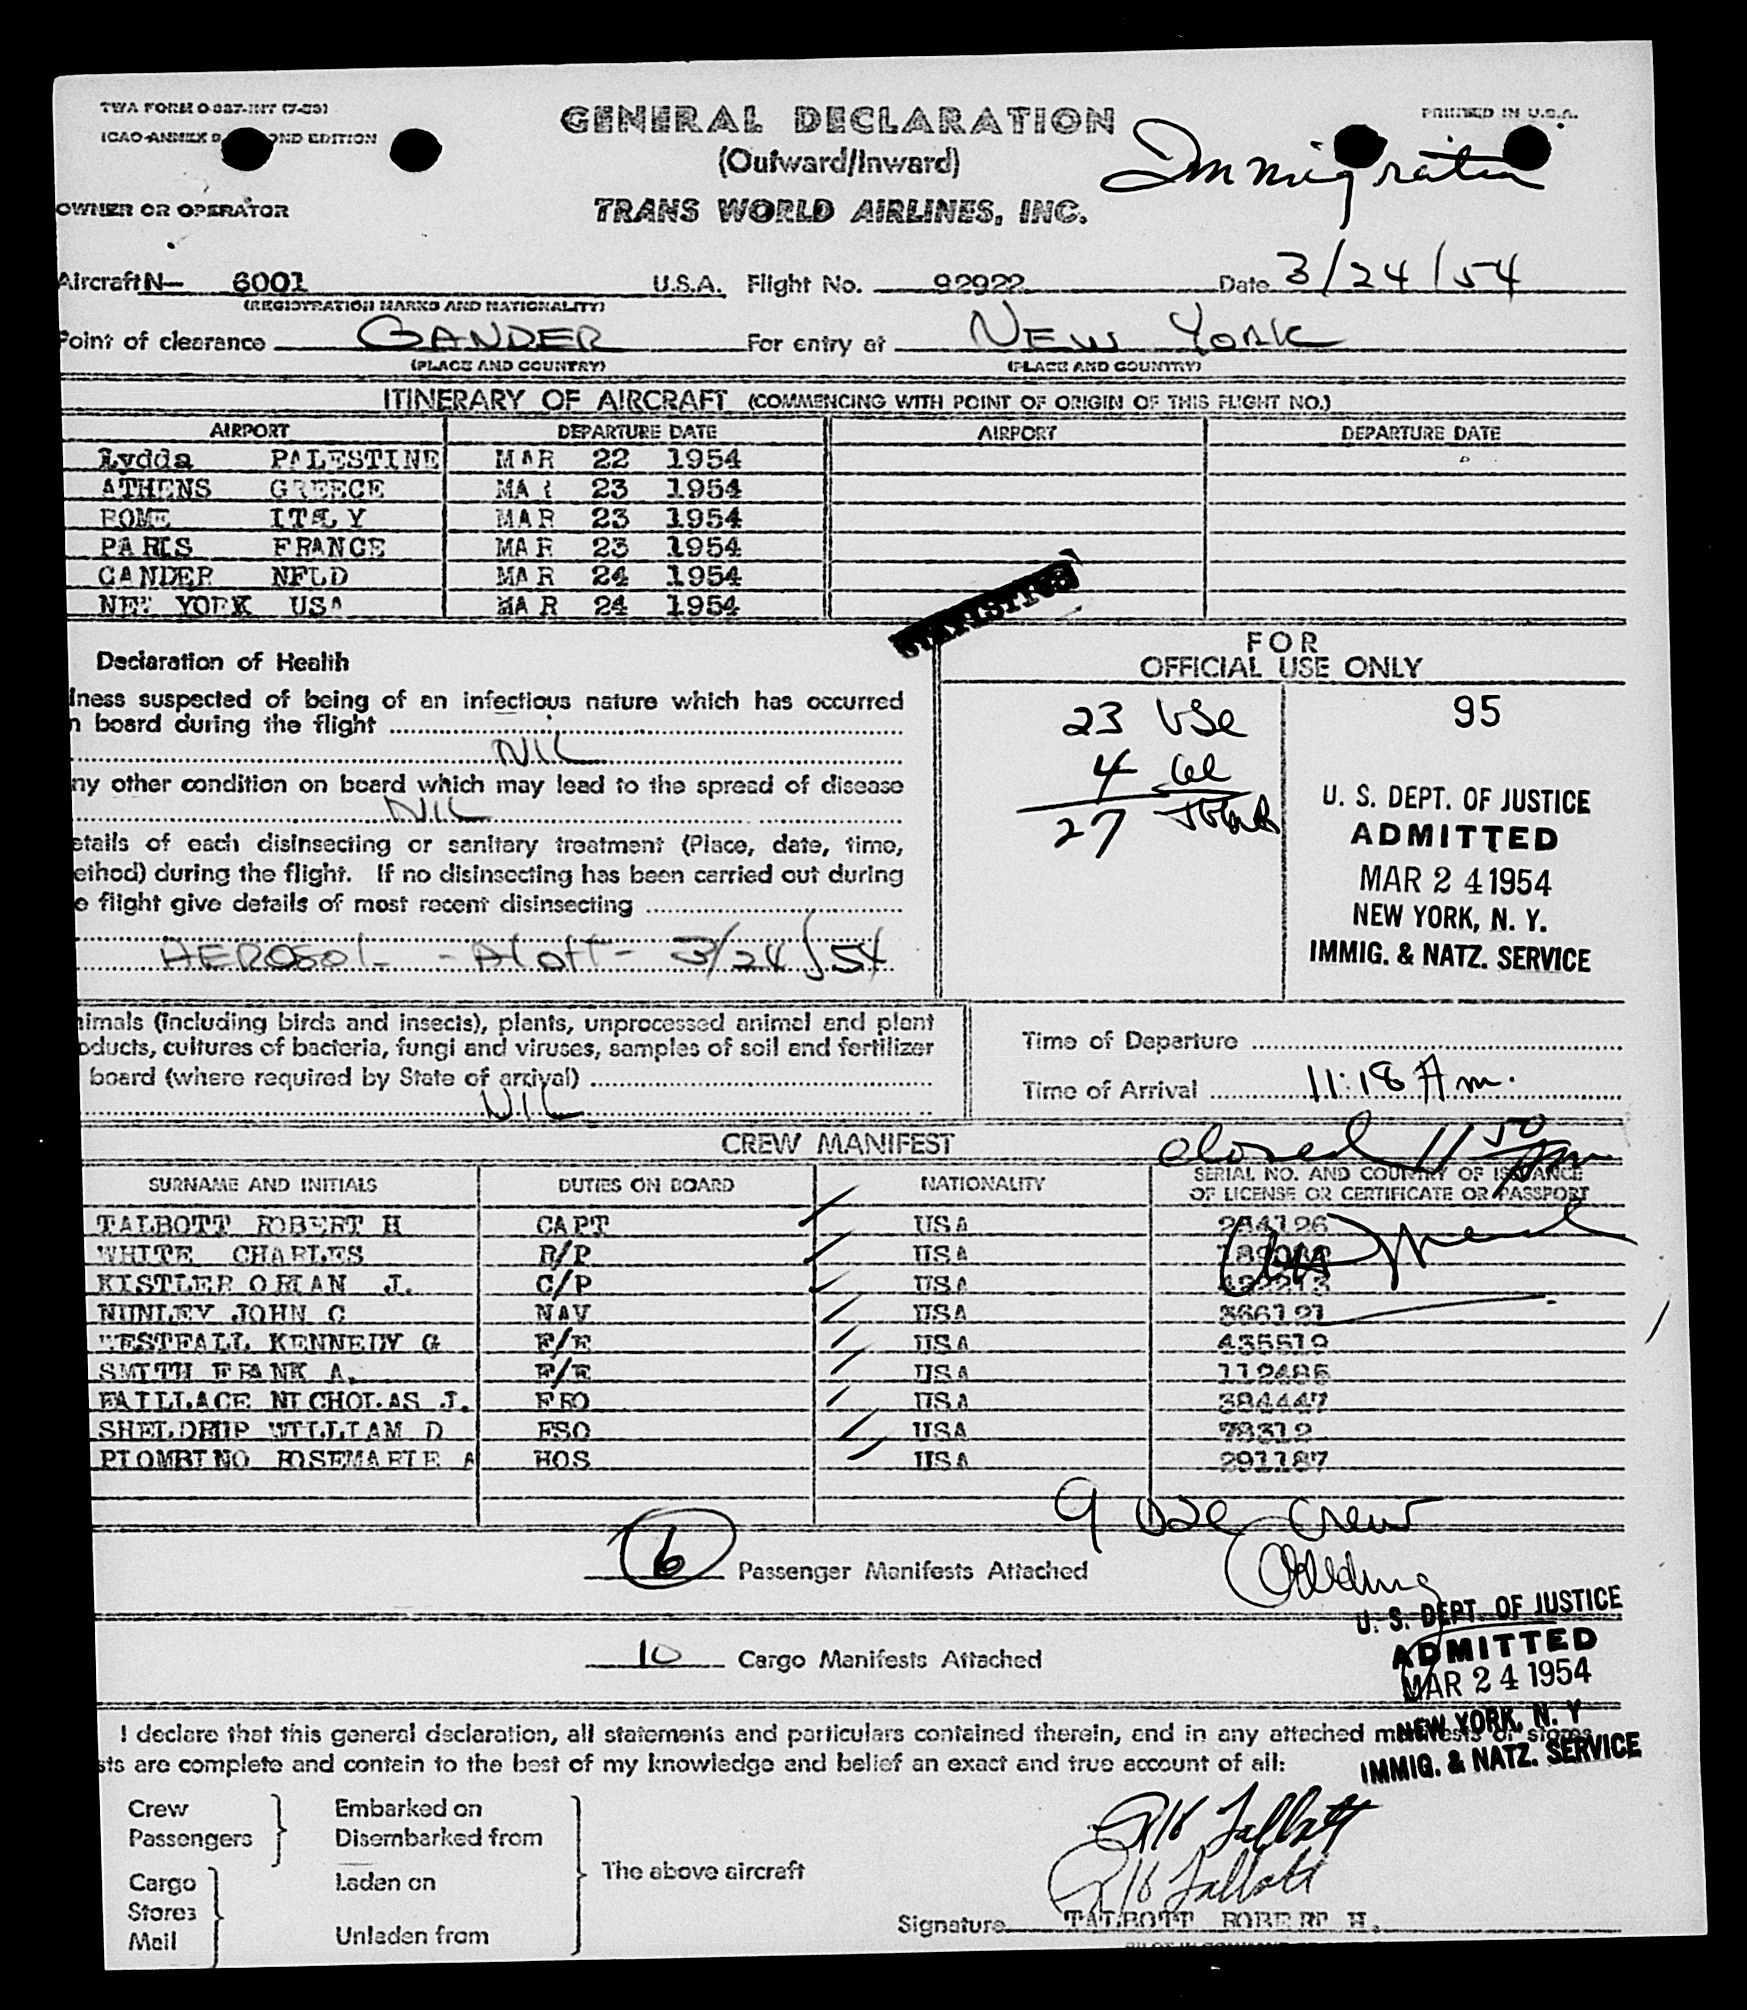 TWA FORM O-337-INT (7-53)
GENERAL DECLARATION
PRINTED IN U.S.A.
ICAO-ANNEX 9, OND EDITION
(Outward/Inward)
Immigration
OWNER OR OPERATOR
TRANS WORLD AIRLINES, INC.
Aircraft N- 6001 U.S.A. Flight No. 92922 Date 3/24/54
(REGISTRATION MARKS AND NATIONALITY)
Point of clearance GANDER For entry at NEW YORK
(PLACE AND COUNTRY) (PLACE AND COUNTRY)
ITINERARY OF AIRCRAFT (COMMENCING WITH POINT OF ORIGIN OF THIS FLIGHT NO.)
AIRPORT DEPARTURE DATE AIRPORT DEPARTURE DATE
Lydda PALESTINE MAR 22 1954
ATHENS GREECE MAR 23 1954
ROME ITALY MAR 23 1954
PARIS FRANCE MAR 23 1954
GANDER NFLD MAR 24 1954
NEW YORK USA MAR 24 1954
STATISTICS
FOR
OFFICIAL USE ONLY
Declaration of Health
lness suspected of being of an infectious nature which has occurred
n board during the flight
NIL
ny other condition on board which may lead to the spread of disease
NIL
etails of each disinsecting or sanitary treatment (Place, date, time,
ethod) during the flight. If no disinsecting has been carried out during
e flight give details of most recent disinsecting
AEROSOL - Aloft - 3/24/54
23 USC
4
27 Total
95
U. S. DEPT. OF JUSTICE
ADMITTED
MAR 24 1954
NEW YORK, N. Y.
IMMIG. & NATZ. SERVICE
nimals (including birds and insects), plants, unprocessed animal and plant
oducts, cultures of bacteria, fungi and viruses, samples of soil and fertilizer
board (where required by State of arrival)
NIL
Time of Departure
Time of Arrival 11:18 Am.
closed 11 50 Am
CREW MANIFEST
SURNAME AND INITIALS DUTIES ON BOARD NATIONALITY SERIAL NO. AND COUNTRY OF ISSUANCE
OF LICENSE OR CERTIFICATE OR PASSPORT
TALBOTT ROBERT H CAPT USA 294126
WHITE CHARLES R/P USA
KISTLER ORIAN J. C/P USA 492213
NUNLEY JOHN C NAV USA 366121
WESTFALL KENNEDY G F/E USA 435519
SMITH FRANK A. F/E USA 112485
FAILLACE NICHOLAS J. FRO USA 384447
SHELDRUP WILLIAM D FSO USA 78312
PIOMBINO ROSEMARIE A HOS USA 291187
9 USC Crew
6 Passenger Manifests Attached
10 Cargo Manifests Attached
U. S. DEPT. OF JUSTICE
ADMITTED
MAR 24 1954
NEW YORK, N. Y
IMMIG. & NATZ. SERVICE
I declare that this general declaration, all statements and particulars contained therein, and in any attached manifests or stores
sts are complete and contain to the best of my knowledge and belief an exact and true account of all:
Crew Embarked on
Passengers Disembarked from
The above aircraft
Cargo Laden on
Stores
Mail Unladen from
R H Talbott
R H Talbott
Signature TALBOTT ROBERT H.